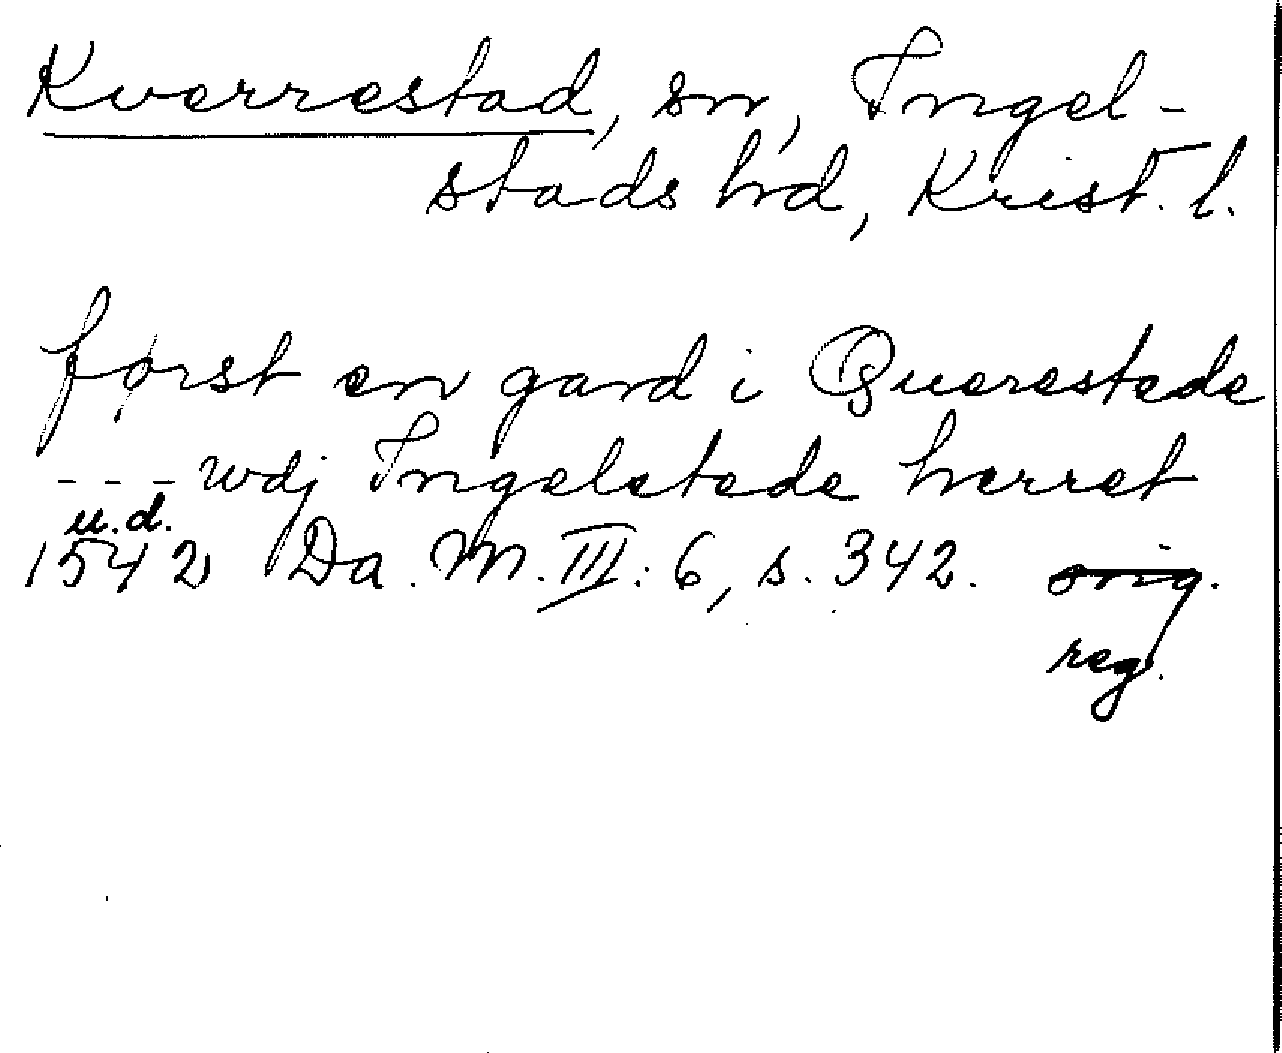 Kverrestad, sn, Ingel-
stads hd, Krist. l.
først en gard i Querestede
--- wdj Ingelstede herret
u.d.
1542 Da. M. III: 6, s. 342. orig.
reg.